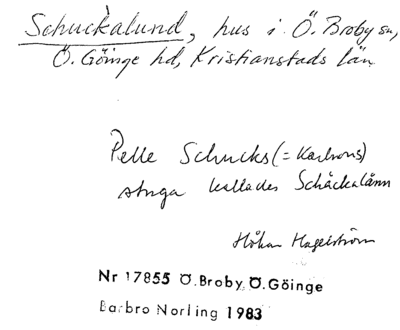 Schuckalund, hus i Ö. Broby sn,
Ö. Göinge hd, Kristianstads län
Pelle Schucks (= Karlsons)
stuga kallades Schäckalånn
Håkan Hagelström
Nr 17855 Ö.Broby, Ö.Göinge
Barbro Norling 1983